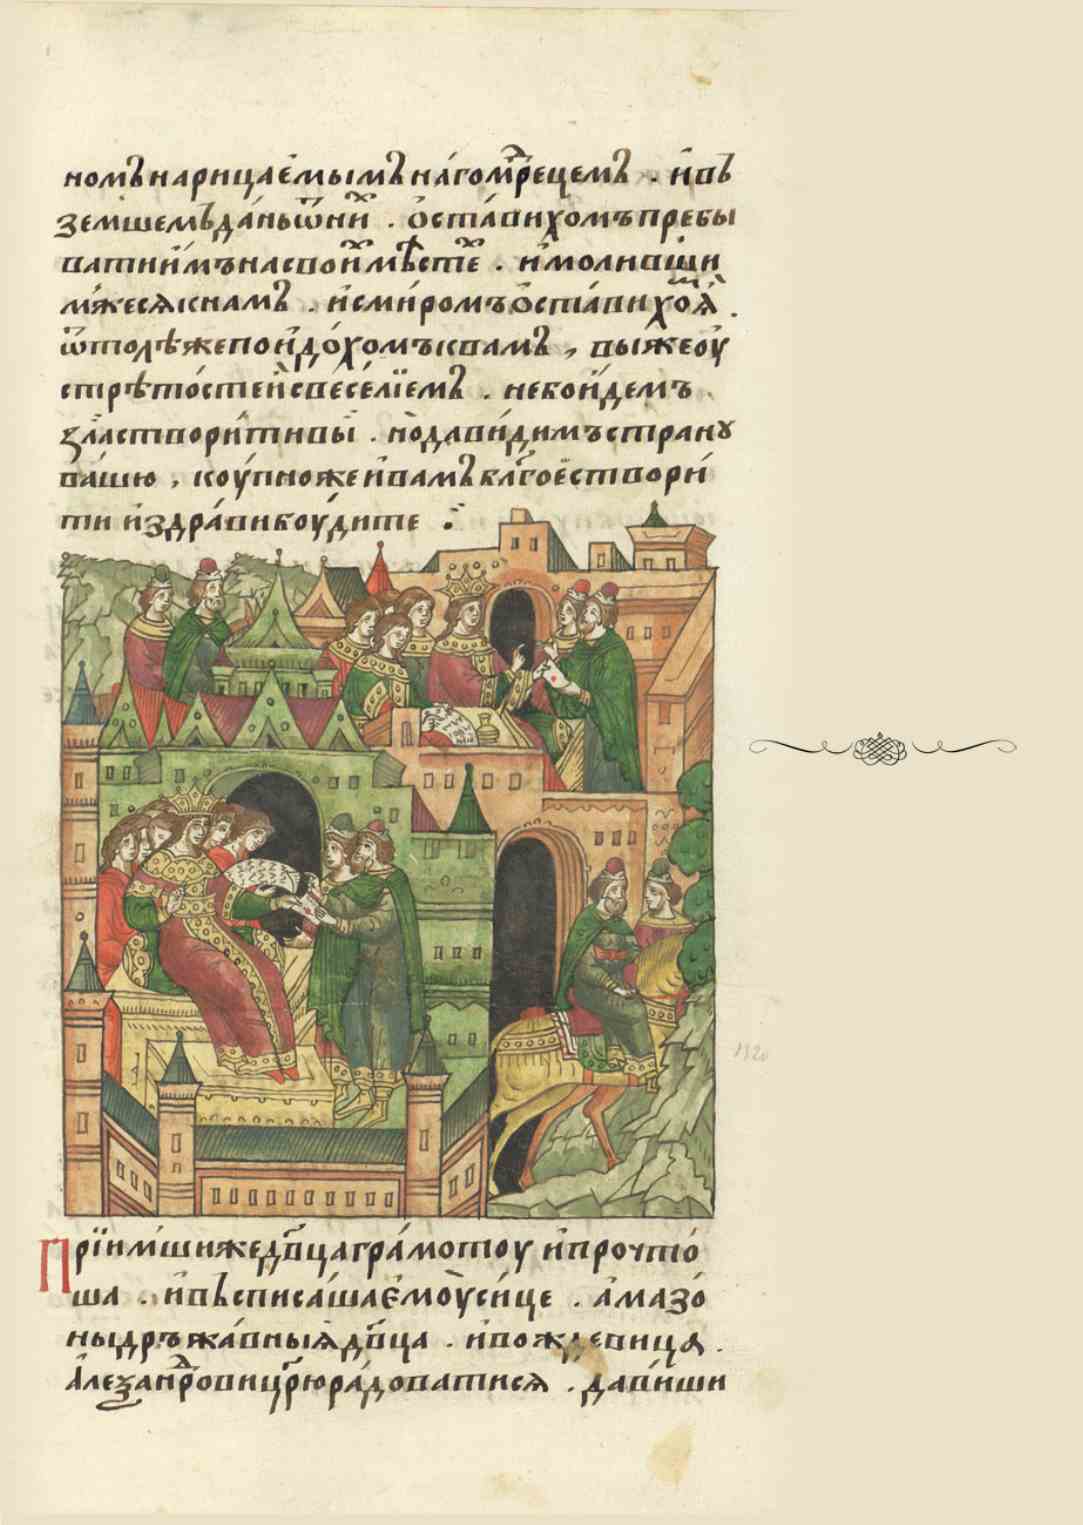 номъ нарицаемымъ нагомрⷣрецемъ . и въ
земшемъ дань ѿ ниⷯ . оставихомъ пребы
вати имъ на своиⷯ мѣстеⷯ . и моливши
мжеся к намъ . и с миромъ оставихоⷨ я .
ѿтолѣже поидохом ъ к вамъ , выже оу
стрѣтостеи с веселіемъ . небо идемъ
зла створити вы . но да видимъ страну
вашю , коупноже и вам ъ бл҃гое створи
ти и здрави боудите :
Пріимшиже дв҃ца грамотоу и прочто
ша . и въсписаша емоу сице . амазо
ны дръжавныя дв҃ца . и вожде вица .
Алеѯанⷣрови цр҃ю радоватися . да виши
1320